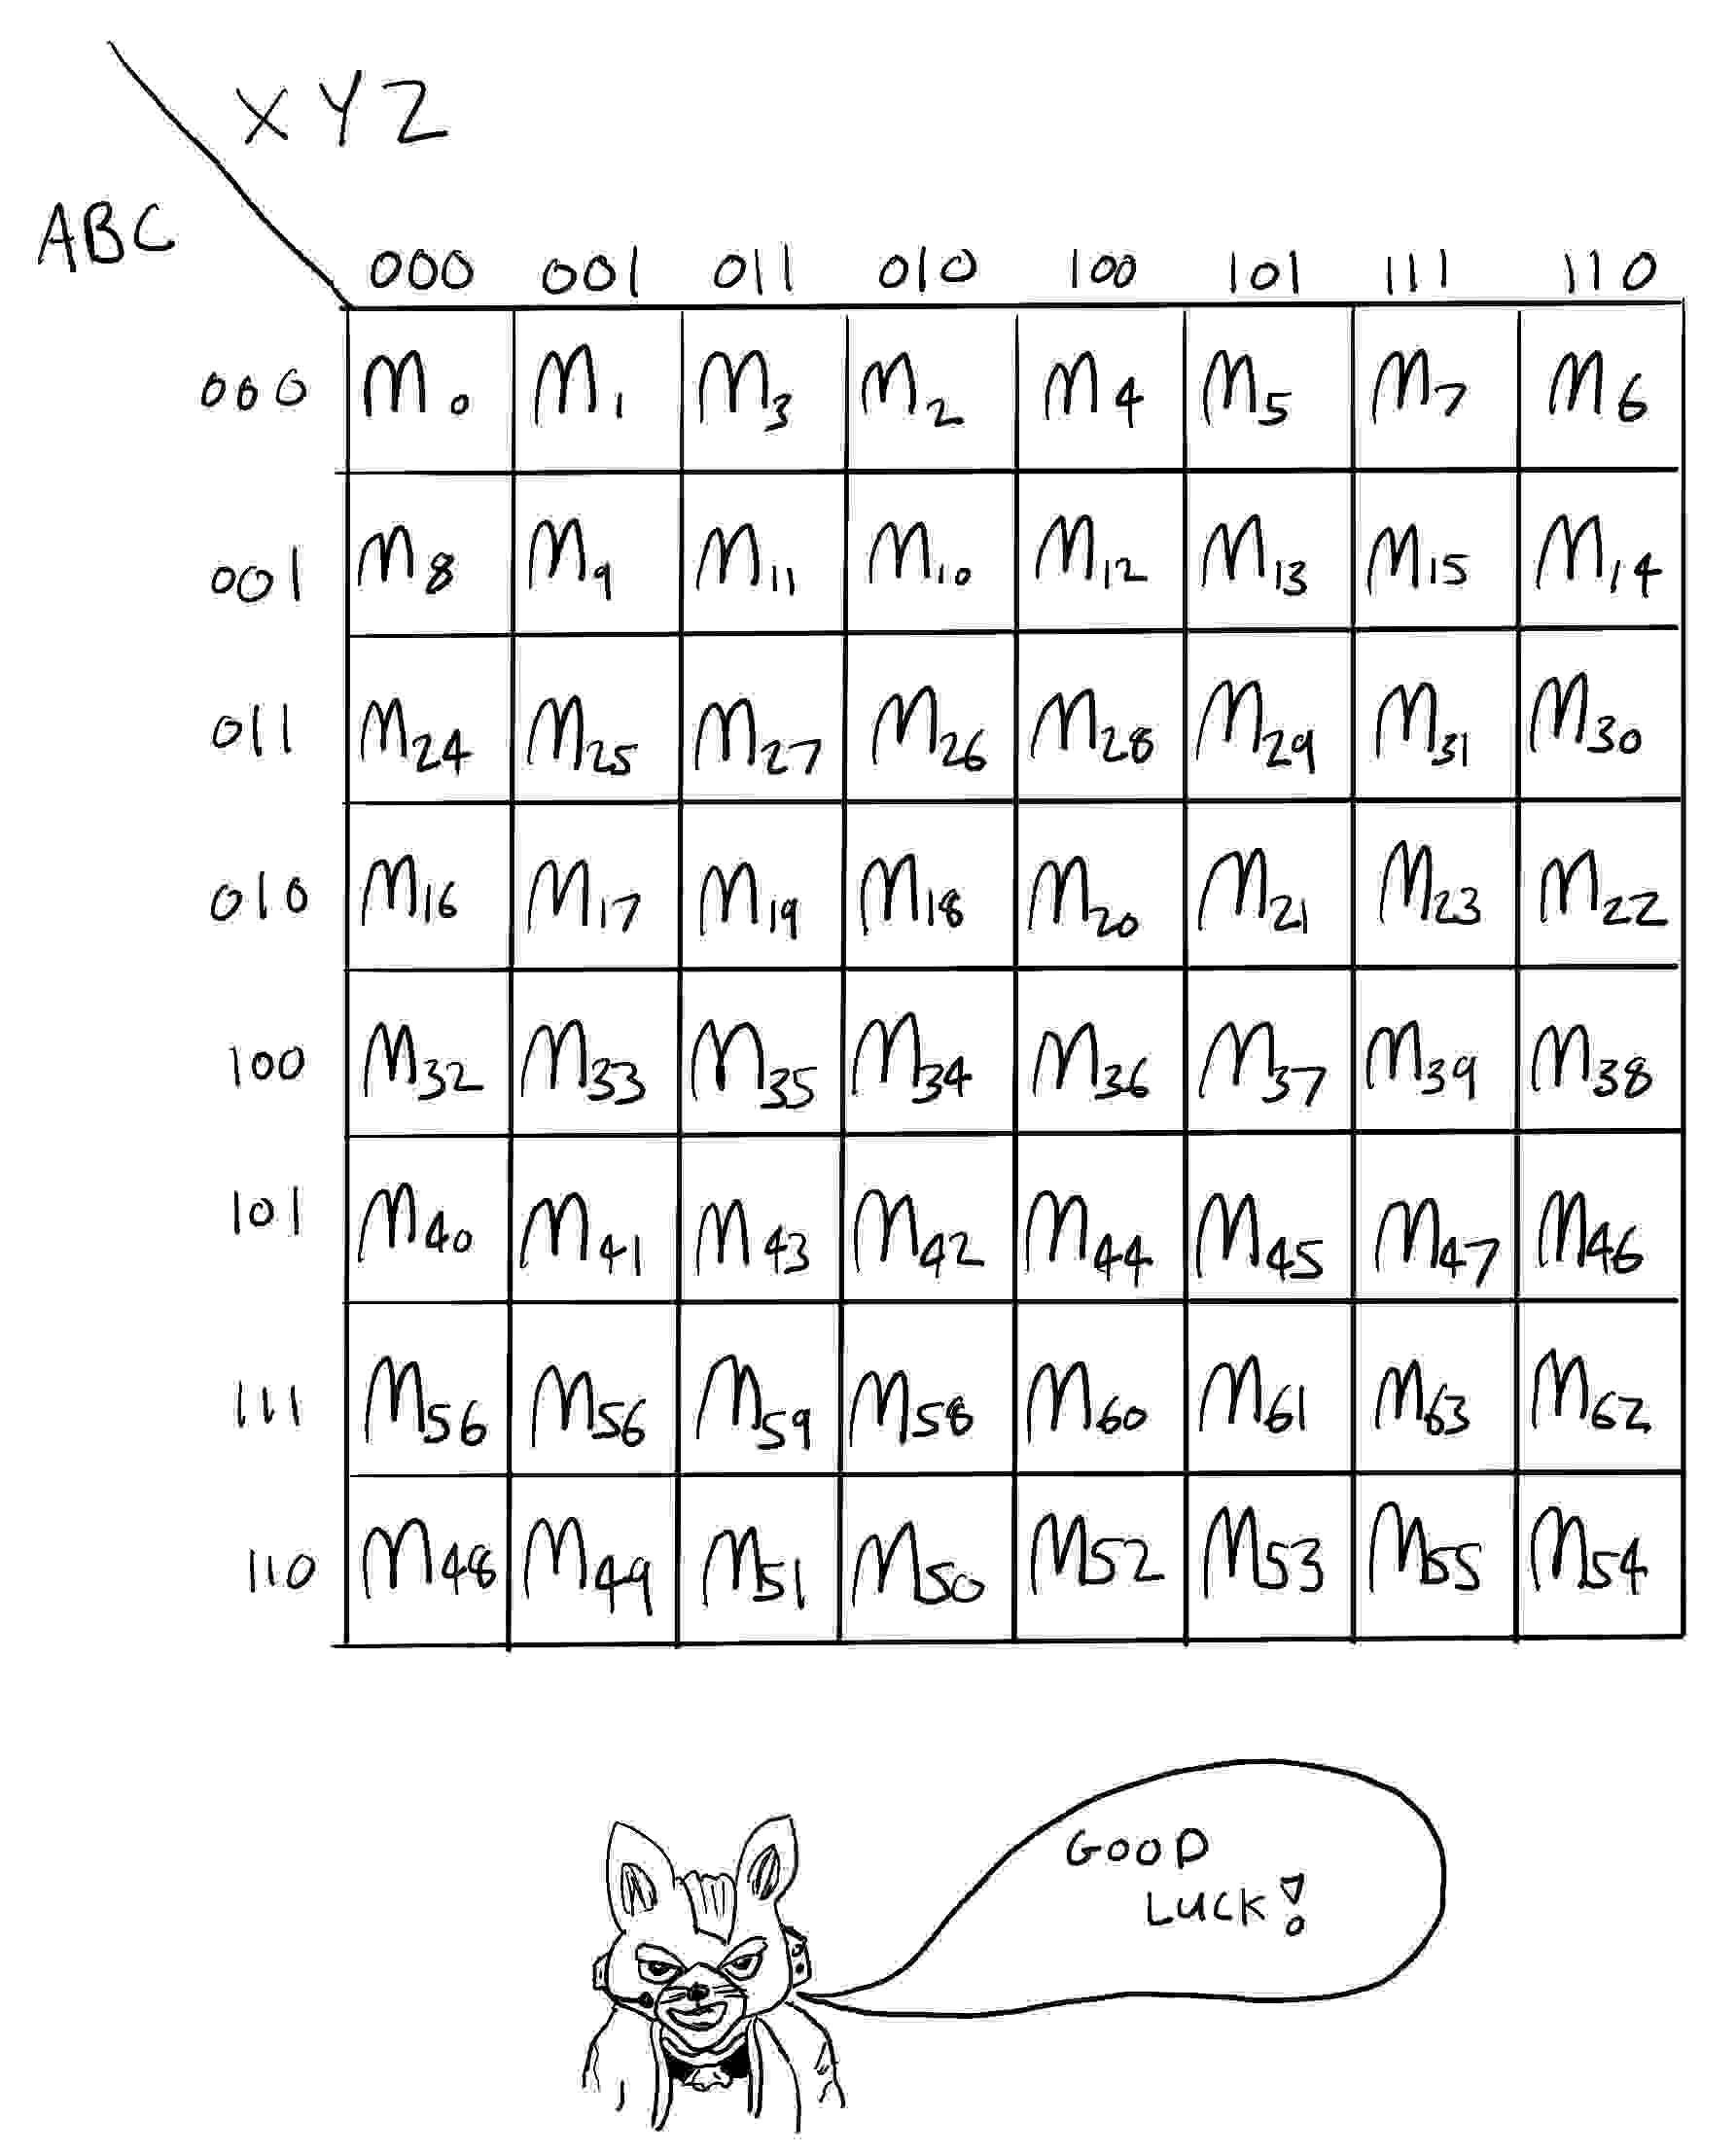 XYZ
ABC
000 001 011 010 100 101 111 110
000 M0 M1 M3 M2 M4 M5 M7 M6
001 M8 M9 M11 M10 M12 M13 M15 M14
011 M24 M25 M27 M26 M28 M29 M31 M30
010 M16 M17 M19 M18 M20 M21 M23 M22
100 M32 M33 M35 M34 M36 M37 M39 M38
101 M40 M41 M43 M42 M44 M45 M47 M46
111 M56 M56 M59 M58 M60 M61 M63 M62
110 M48 M49 M51 M50 M52 M53 M55 M54
GOOD
LUCK!